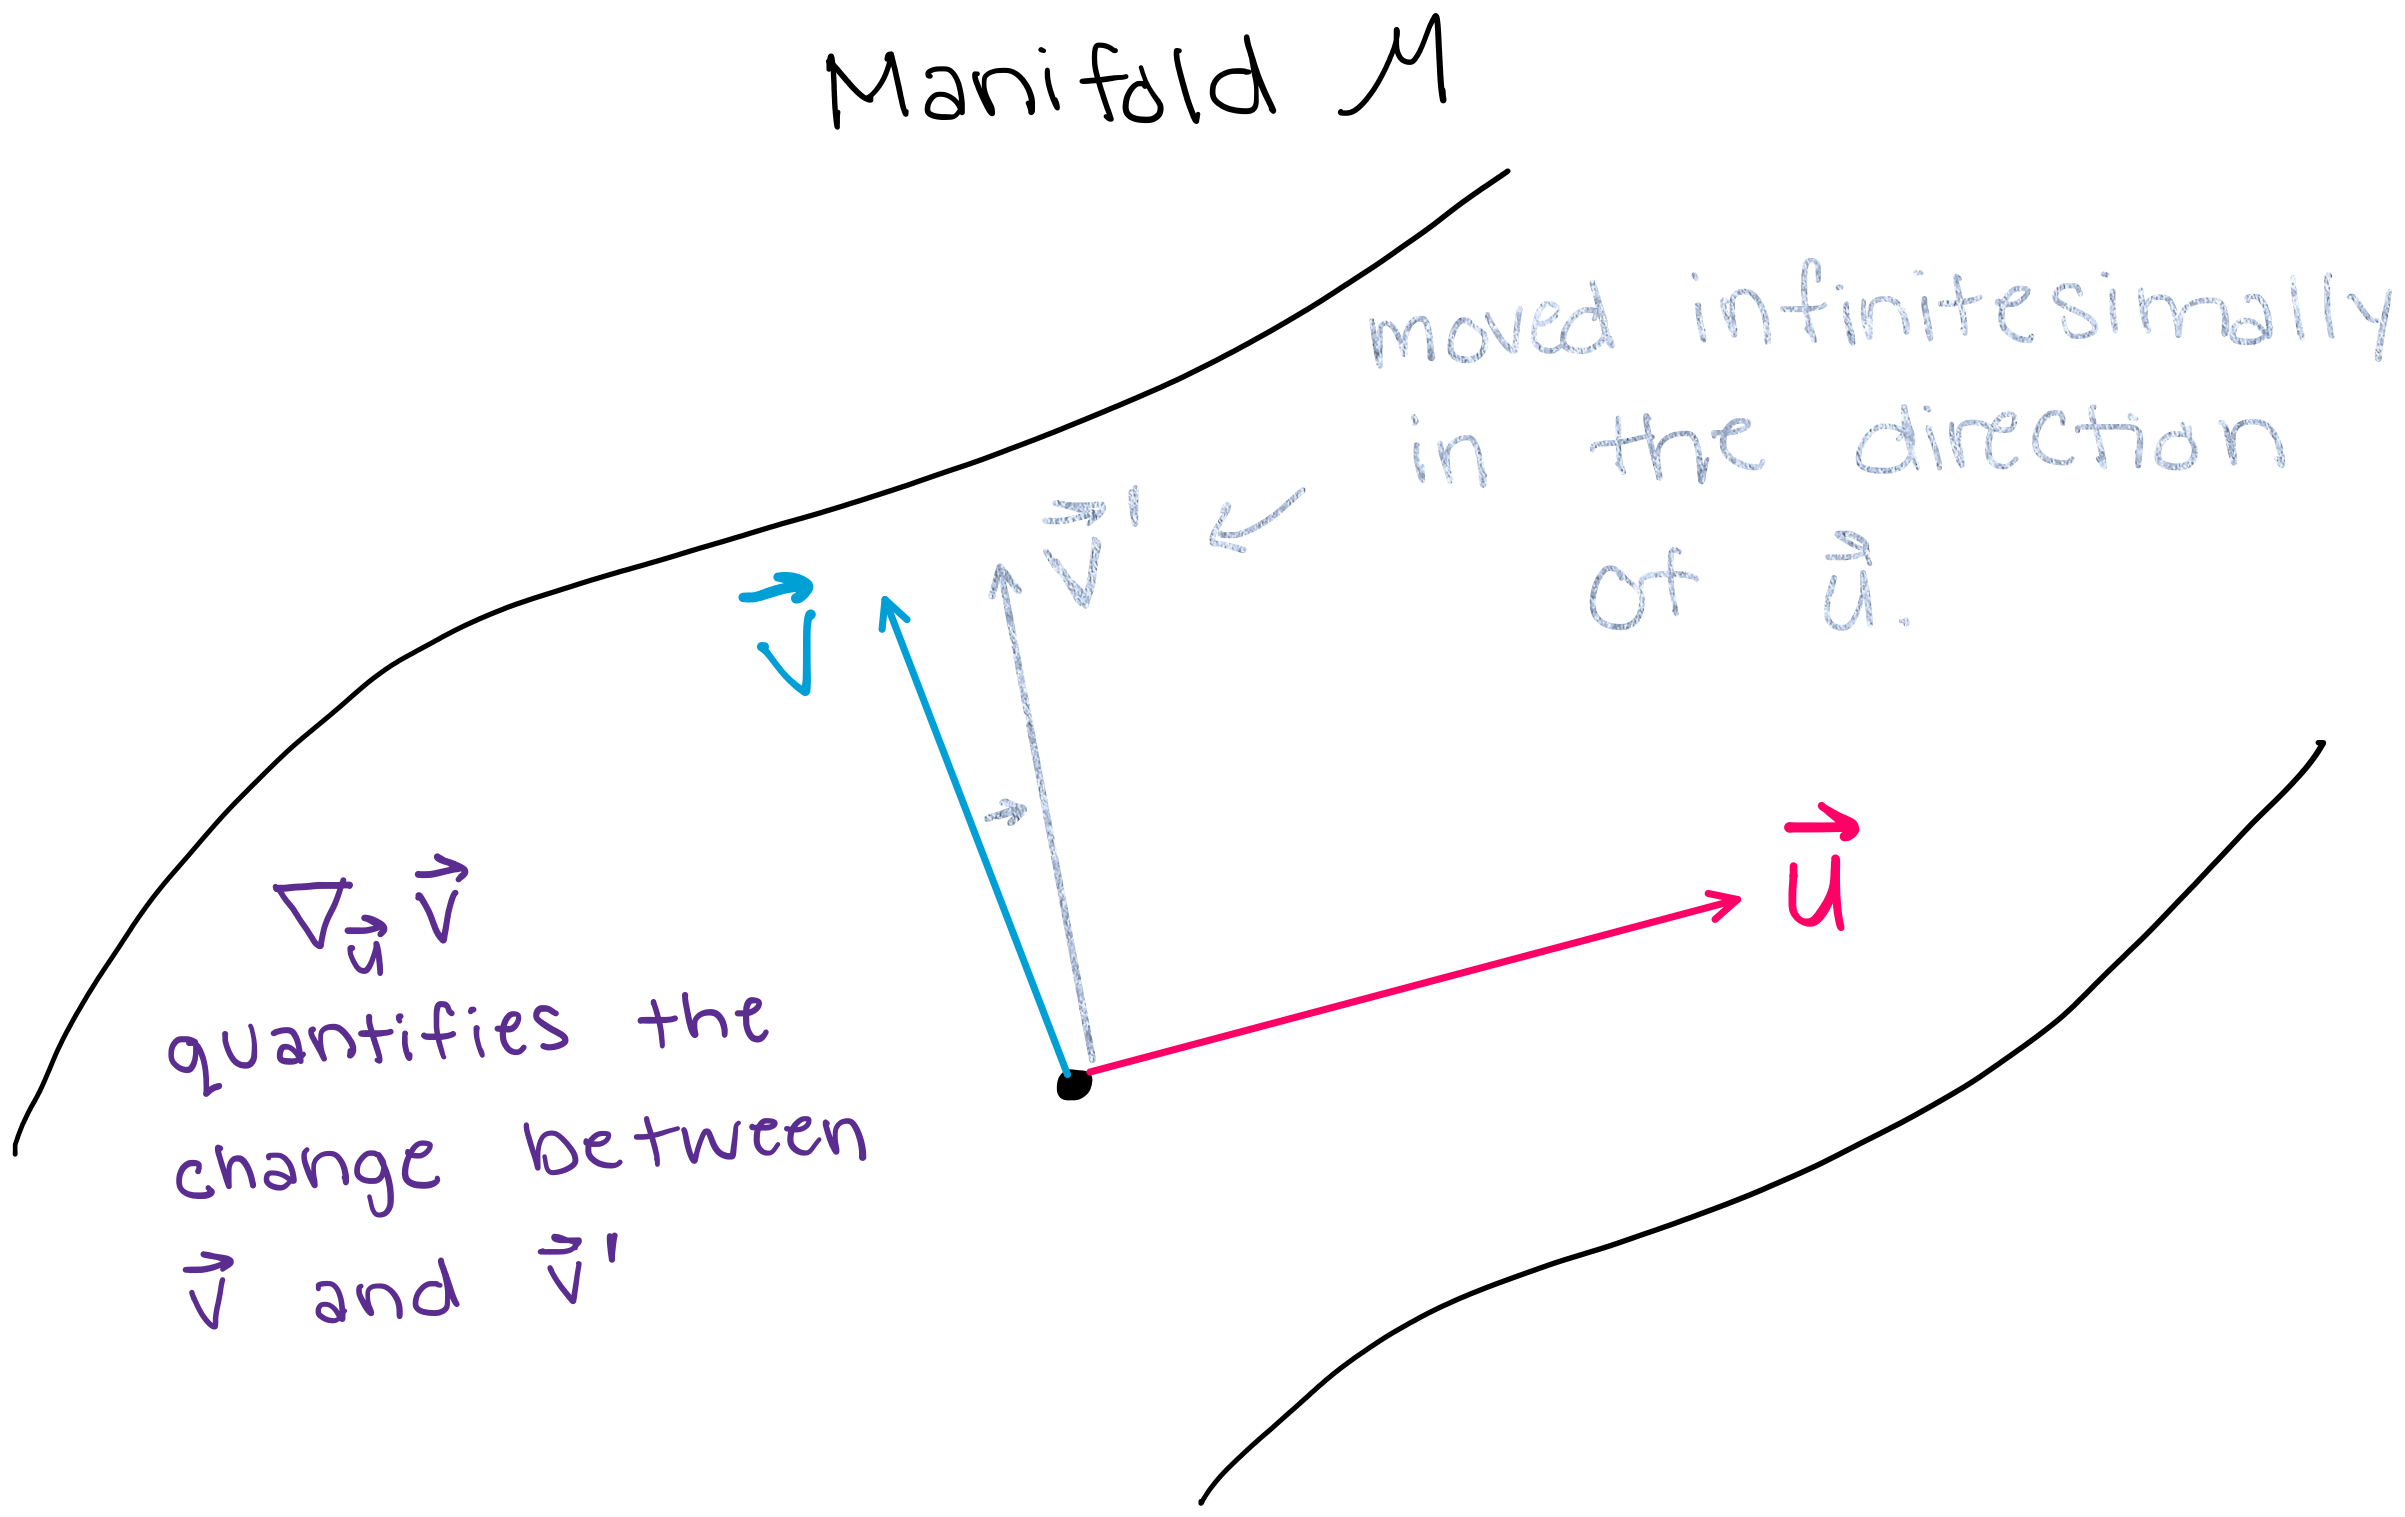 Manifold M
moved infinitesimally
in the direction
of u⃗.
v⃗'
v⃗
u⃗
∇u⃗ v⃗
quantifies the
change between
v⃗ and v⃗'